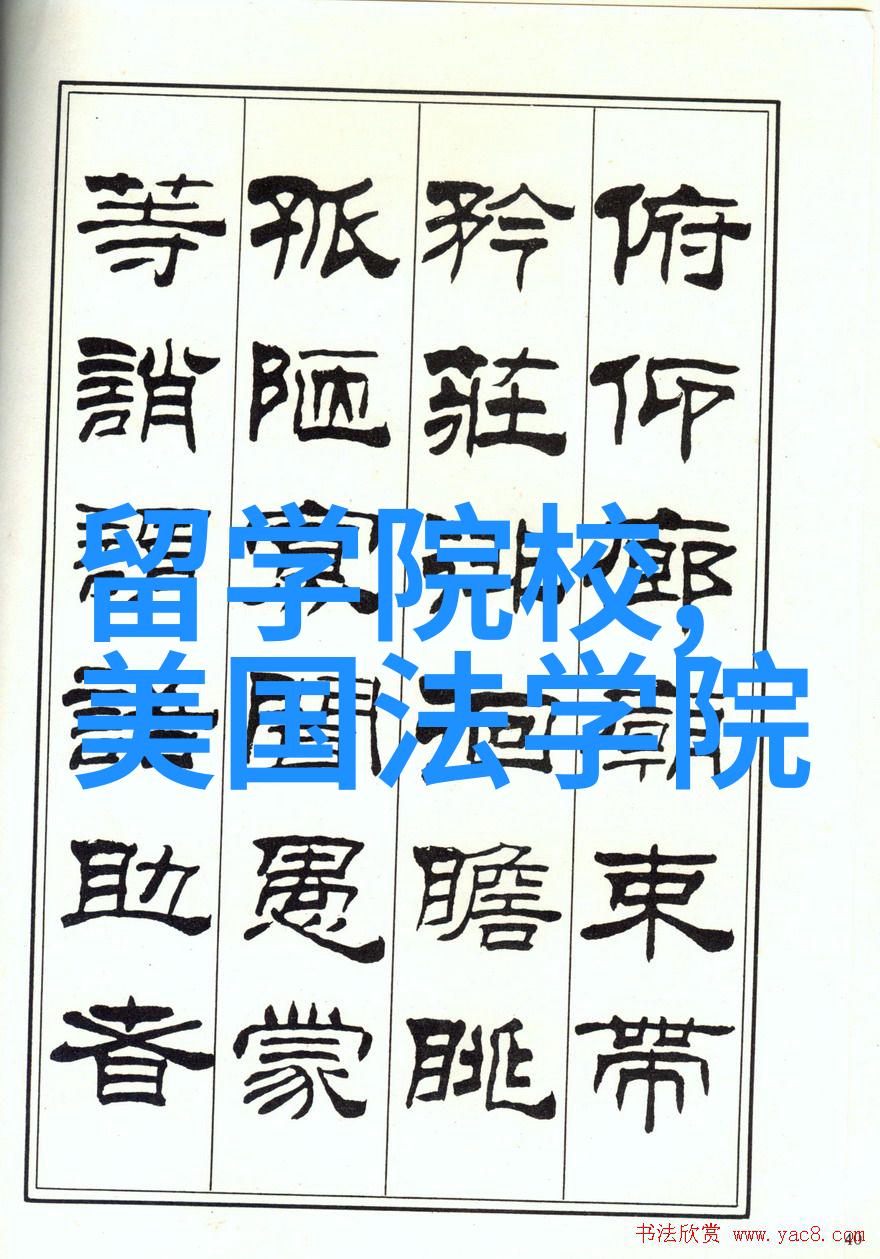 俯仰廊廟束帶
矜莊瞻眺
孤陋寡聞愚蒙
等誚助者
留学院校,
美国法学院
书法欣赏 www.yac8.com
40